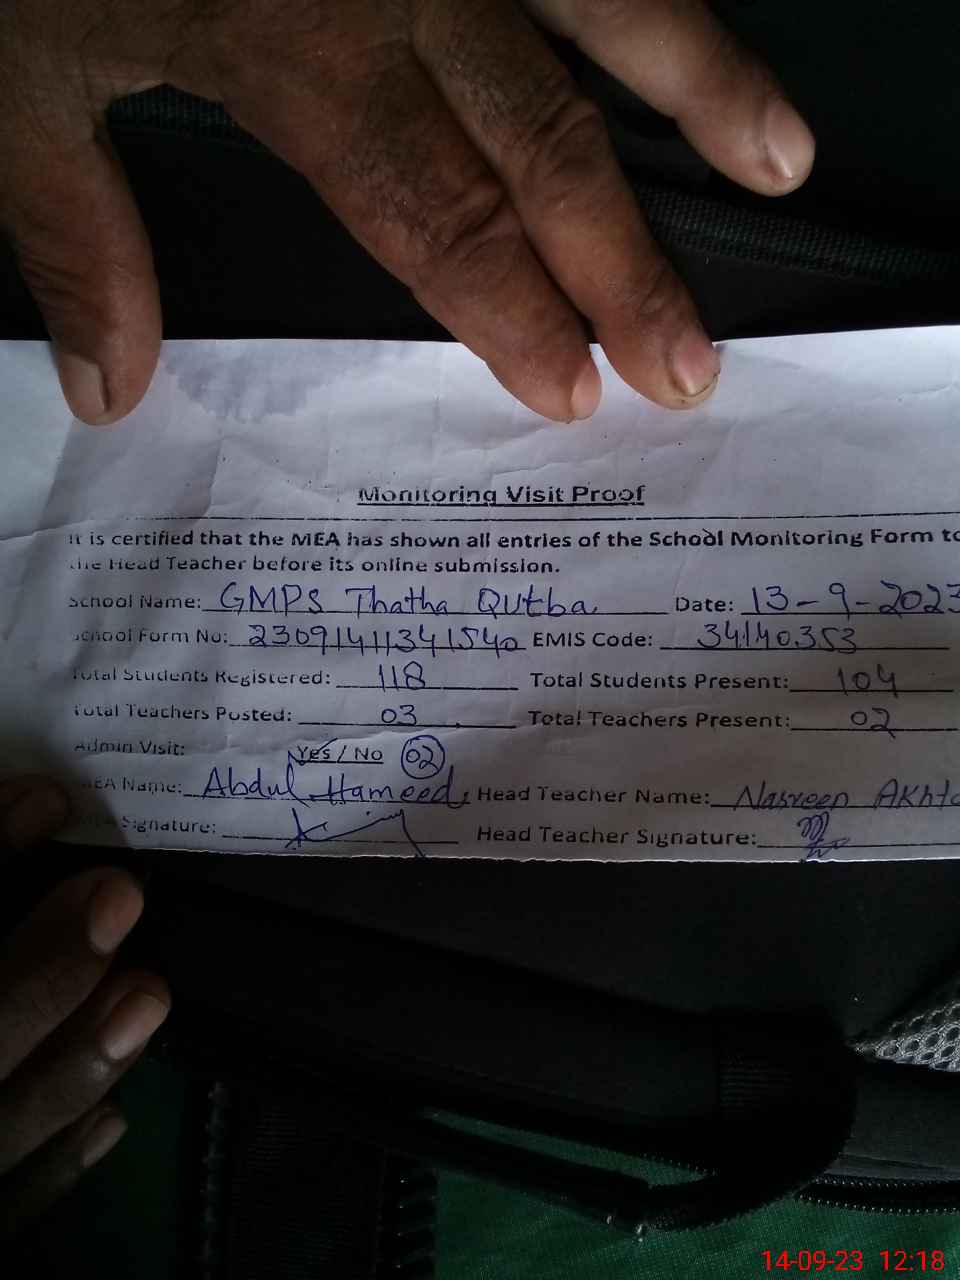 Monitoring Visit Proof
It is certified that the MEA has shown all entries of the School Monitoring Form to
the Head Teacher before its online submission.
School Name: GMPS Thatha Qutba Date: 13-9-2023
School Form No: 23091411341540 EMIS Code: 34140353
Total Students Registered: 118 Total Students Present: 104
Total Teachers Posted: 03 Total Teachers Present: 02
Admin Visit: Yes / No 02
MEA Name: Abdul Hameed Head Teacher Name: Nasreen Akhta
MEA Signature: Head Teacher Signature:
14-09-23 12:18